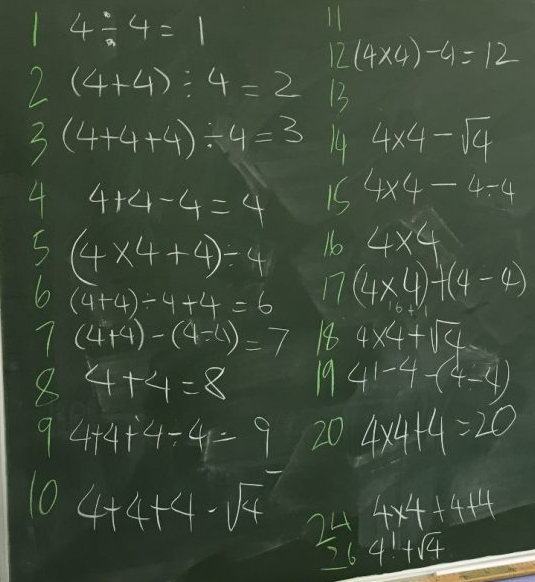 1 4 ÷ 4 = 1
2 (4+4) ÷ 4 = 2
3 (4+4+4) ÷ 4 = 3
4 4+4-4 = 4
5 (4 × 4 + 4) ÷ 4
6 (4+4) ÷ 4+4 = 6
7 (4+4) - (4÷4) = 7
8 4+4 = 8
9 4+4+4÷4 = 9
10 4+4+4 - √4
11
12 (4×4) - 4 = 12
13
14 4×4 - √4
15 4×4 - 4÷4
16 4×4
17 (4×4) + (4 ÷ 4)
16+1
18 4×4+√4
19 4! - 4 - (4÷4)
20 4×4+4 = 20
24 4×4+4+4
26 4! + √4